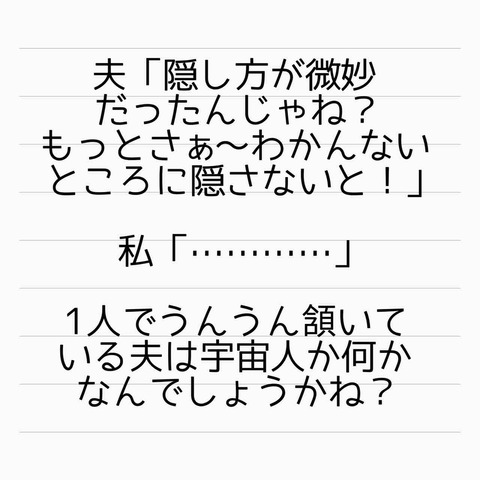 夫「隠し方が微妙
だったんじゃね？
もっとさぁ〜わかんない
ところに隠さないと！」
私「…………」
1人でうんうん頷いて
いる夫は宇宙人か何か
なんでしょうかね？